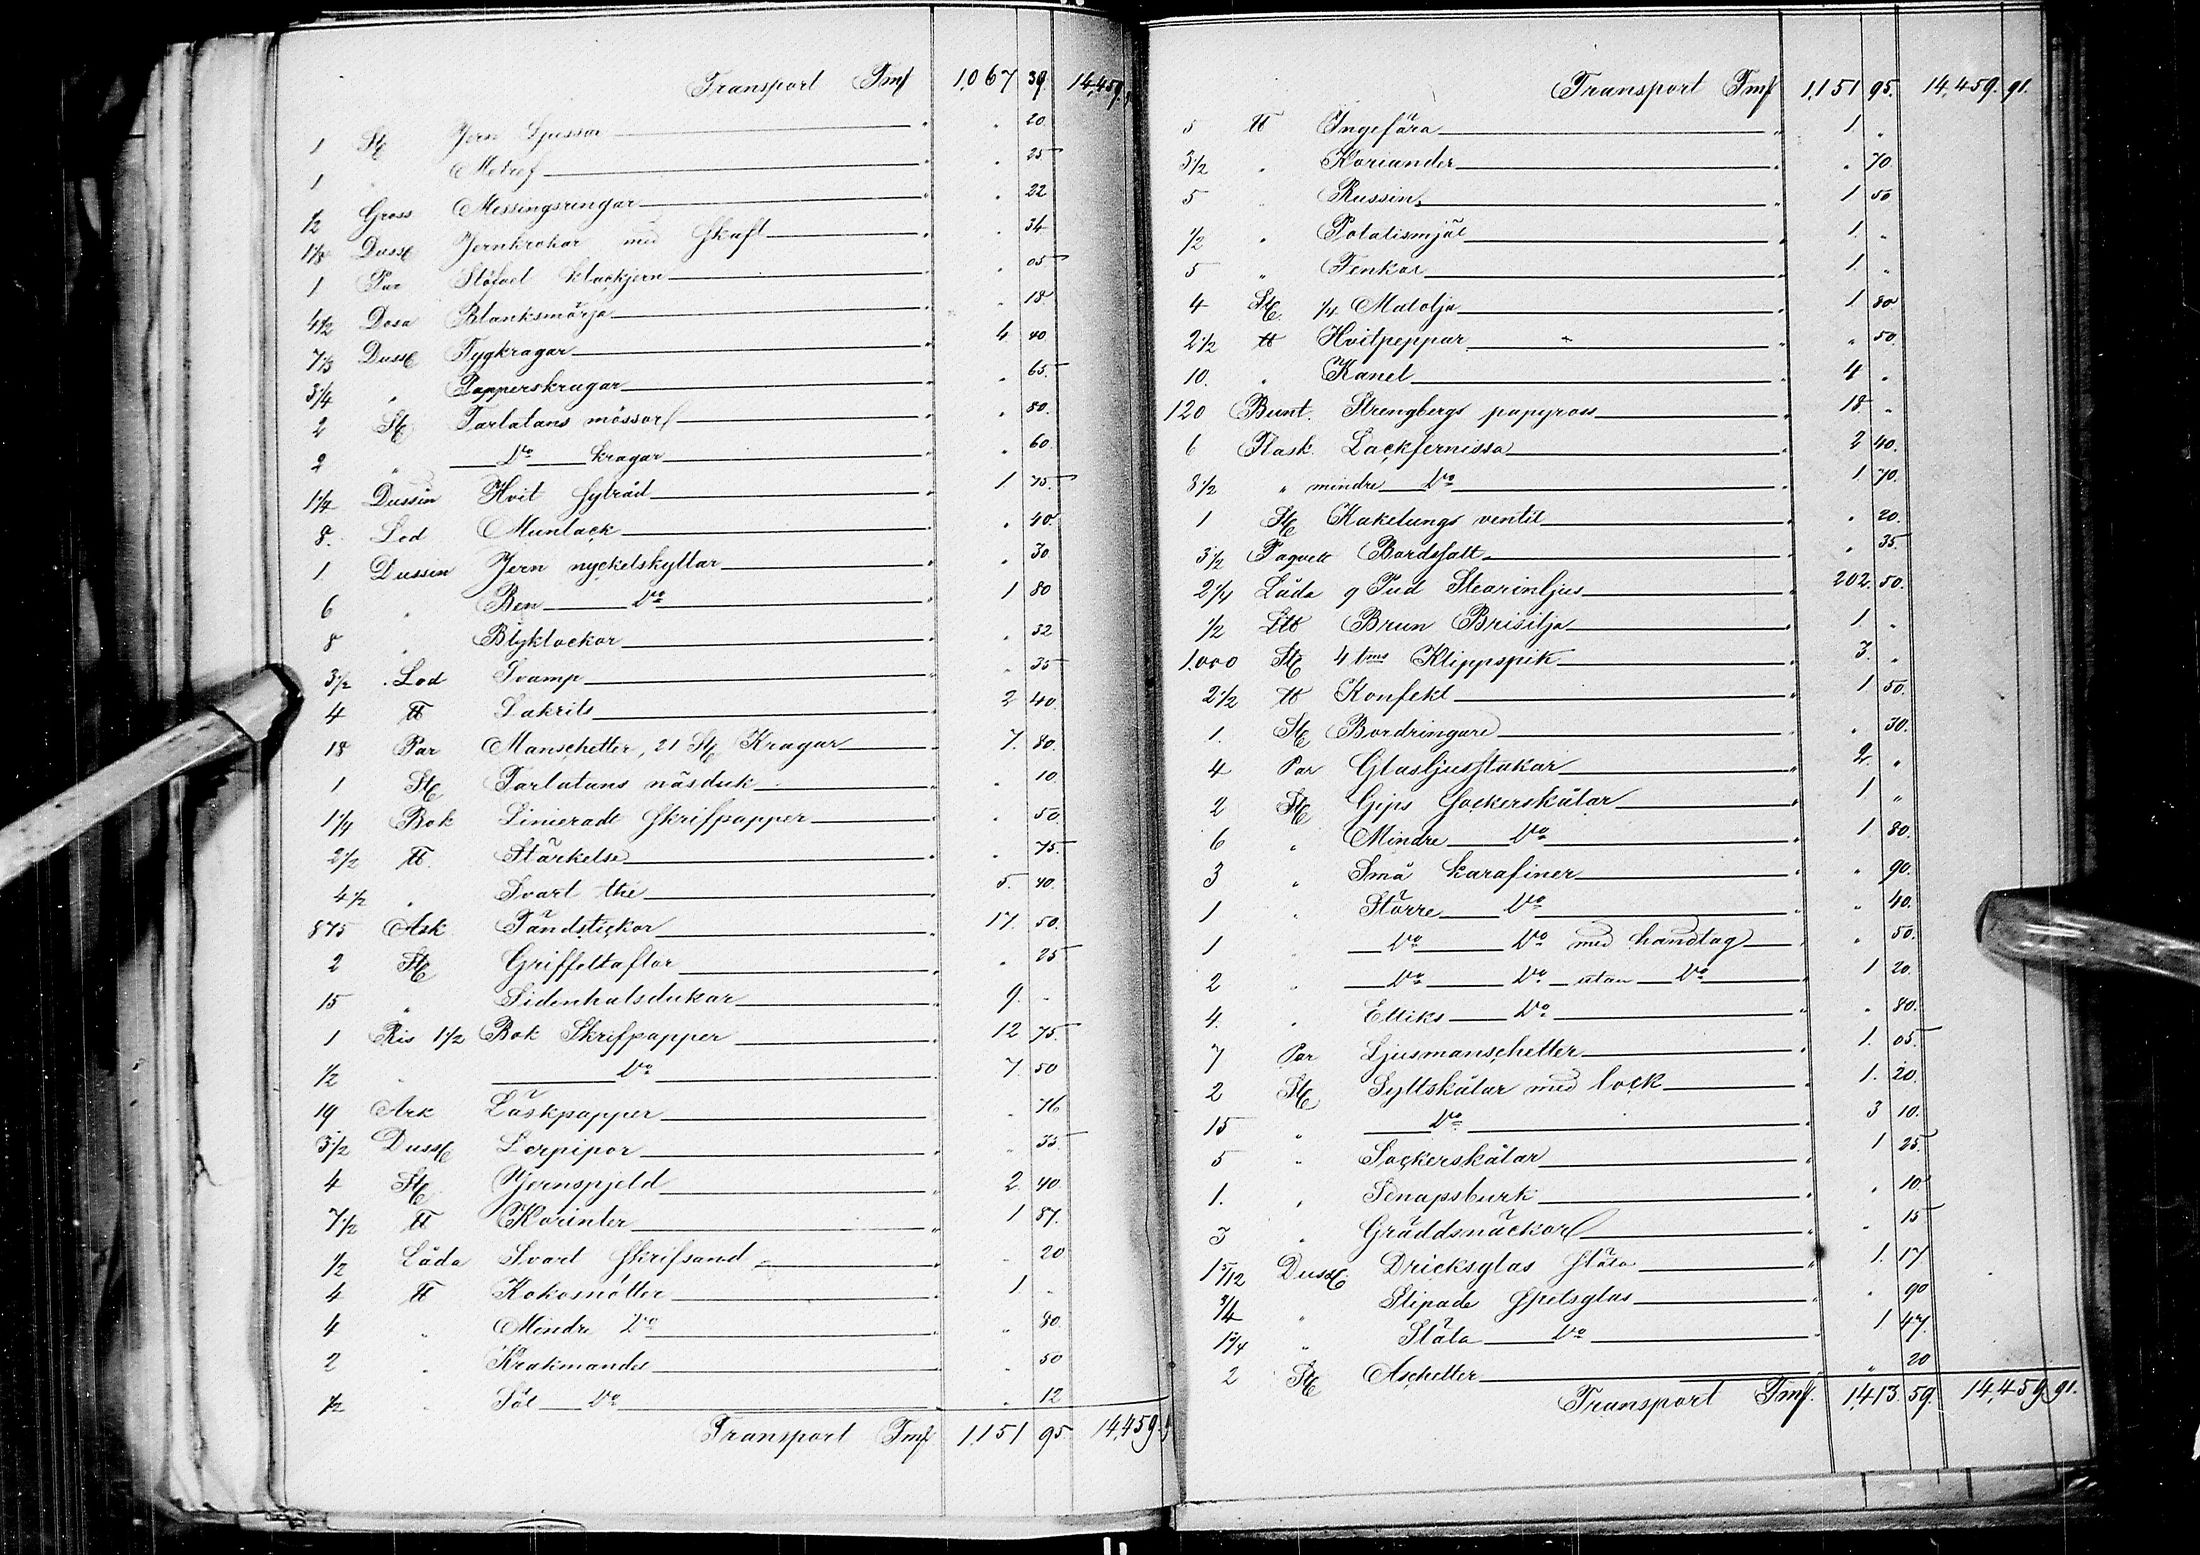 Transport Fmk 1,067 39. 14,459.
1 St Jern Ljussax " . 20
1 " Metref " . 25
1/2 Gross Messingsringar " . 22
1 1/8 Duss Jernkrokar med skaft " . 34
1 Par Stöfvel klackjern " . 05
4 1/2 Dosa Blanksmörja " . 18
7 1/3 Duss Tygkragar " 4 40
3/4 " Papperskragar " . 65.
2 St Tarlatans mössor " . 80.
2 " Do kragar " . 60.
1 1/4 Dussin Hvit sytråd " 1 75.
8. Lod Munlack " . 40.
1 Dussin Jern nyckelskyltar " . 30
6 " Ben Do " 1 80
8 " Blyklockor " . 32
3 1/2 Lod Svamp " . 35
4 ℔ Lakrits " 2 40.
18 Par Manschetter, 21 St Kragar " 7. 80.
1 St Tarlatans näsduk " . 10
1 1/4 Bok Linieradt skrifpapper " . 50
2 1/2 ℔ Stärkelse " . 75.
4 1/2 " Svart thé " 5. 40.
875 Ask Tändstickor " 17. 50.
2 St Griffeltaflor " . 25
15 " Sidenhalsdukar " 9. -
1 Ris 1 1/2 Bok Skrifpapper " 12 75.
1/2 " Do " 7. 50
19 Ark Läskpapper " . 76
3 1/2 Duss Lerpipor " . 35.
4 St Jernspjeld " 2. 40.
7 1/2 ℔ Korinter " 1 87.
1/2 Låda Svart skrifsand " . 20
4 ℔ Kokosnötter " 1 -
4 " Mindre Do " . 80.
2 " Krakmandel " . 50
1/2 " Söt Do " . 12
Transport Fmk 1,151 95. 14,459.
Transport Fmk 1,151 95. 14,459. 91.
5 ℔ Ingefära " 1 "
3 1/2 " Koriander " . 70.
5 " Russin " 1 50
1/2 " Potatismjöl " 1. "
5 " Fenkol " 1. "
4 St 1/4 Matolja " 1 80
2 1/2 ℔ Hvitpeppar " . 50.
10. " Kanel " 4 "
120 Bunt. Strengbergs papyross " 18 "
6 Flask. Lackfernissa " 2 40.
8 1/2 " mindre Do " 1 70.
1 St Kakelungs ventil " . 20.
3 1/2 Paquett Bordssalt " . 35.
2 1/4 Låda 9 Pud Stearinljus " 202. 50.
1/2 L℔ Brun Brisilja " 1. "
1.000 St 4 tms Klippspik " 3. "
2 1/2 ℔ Konfekt " 1 50.
1. St Bordringare " . 30.
4 Par Glasljusstakar " 2. "
2 St Gips Sockerskålar " 1 "
6 " Mindre Do " 1 80.
3 " Små karafiner " . 90.
1 " Större Do " . 40.
1 " Do Do med handtag " . 50.
2 " Do Do utan Do " 1 20.
4. " Ettiks Do " . 80.
7 Par Ljusmanschetter " 1. 05.
2 St Syltskålar med lock " 1. 20.
15 " Do " 3 10.
5 " Sockerskålar " 1 25.
1. " Senapsburk " . 10
3 " Gräddsnäckor " . 15
1 5/12 Duss. Dricksglas släta " 1. 17
3/4 " Slipade spetsglas " . 90
1 3/4 " Släta Do " 1 47.
2 St Aschetter " 20
Transport Fmk. 1,413. 59. 14,459 91.